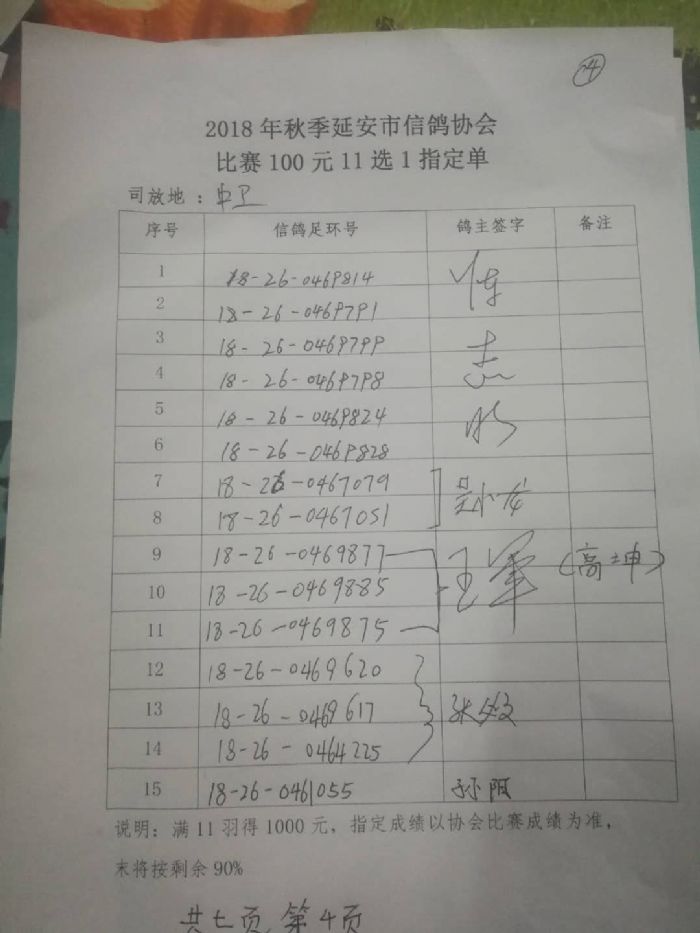 ④
2018年秋季延安市信鸽协会
比赛100元11选1指定单
司放地：中卫
序号 信鸽足环号 鸽主签字 备注
1 18-26-0469814
2 18-26-0469791
3 18-26-0469799
4 18-26-0469798
5 18-26-0469824
6 18-26-0469828
7 18-26-0467079
8 18-26-0467051
9 18-26-0469877 王军 (高坤)
10 18-26-0469885
11 18-26-0469875
12 18-26-0469620
13 18-26-0469617
14 18-26-0464225
15 18-26-0461055 孙阳
说明：满11羽得1000元，指定成绩以协会比赛成绩为准，
末将按剩余90%
共七页 第4页